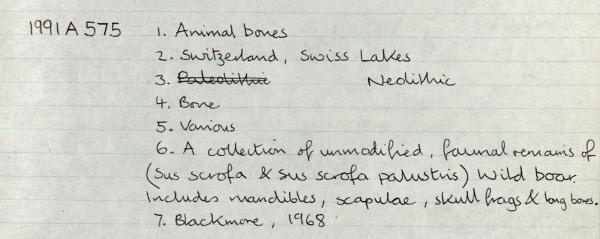 1991 A 575 1. Animal bones
2. Switzerland, Swiss Lakes
3. Paleolithic Neolithic
4. Bone
5. Various
6. A collection of unmodified, faunal remains of
(Sus scrofa & Sus scrofa palustris) Wild boar.
Includes mandibles, scapulae, skull frags & long bones.
7. Blackmore, 1968